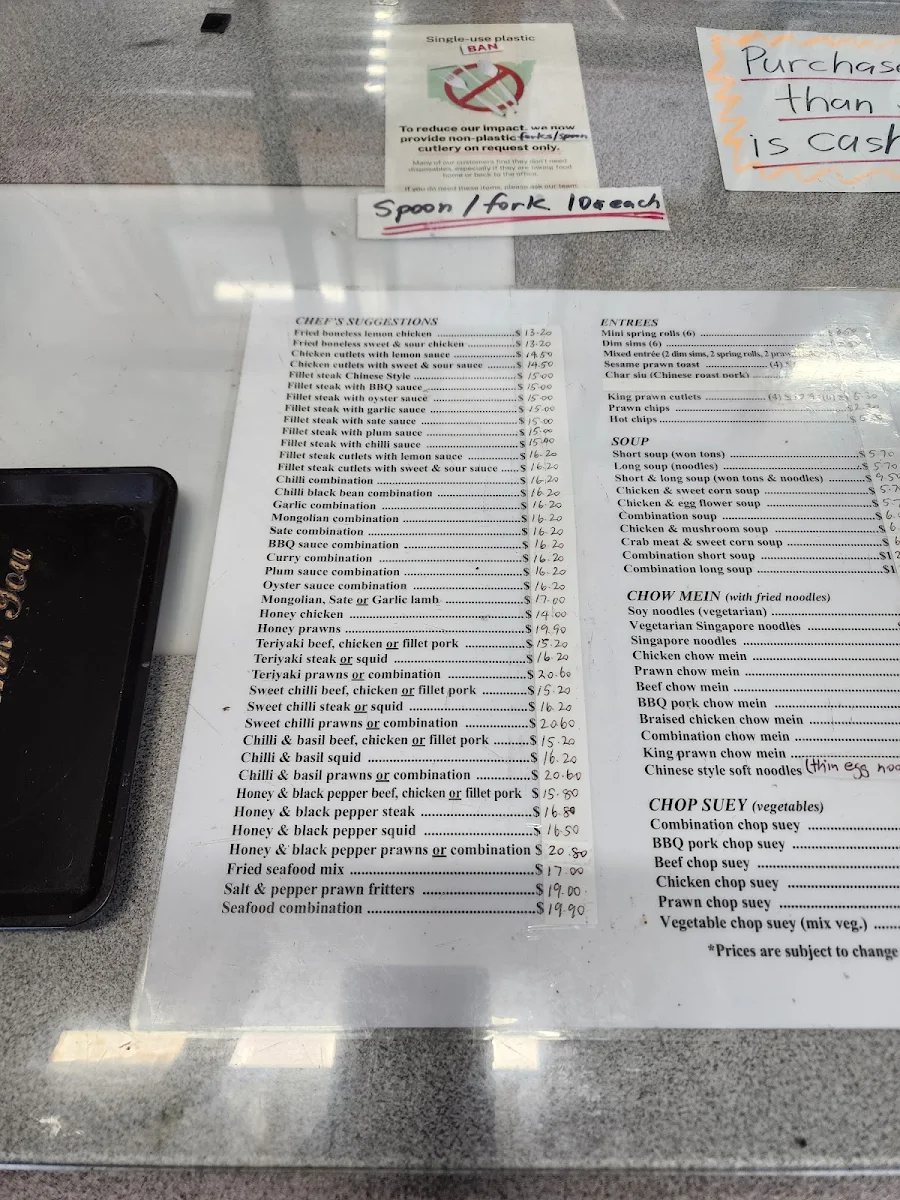 Single-use plastic
BAN
To reduce our impact, we now
provide non-plastic forks/spoon
cutlery on request only.
Many of our customers find they don't need
disposables, especially if they are taking food
home or back to the office.
If you do need these items, please ask our team.
Spoon / fork 10¢ each
Purchase
than
is cash
CHEF'S SUGGESTIONS
Fried boneless lemon chicken $ 13.20
Fried boneless sweet & sour chicken $ 13.20
Chicken cutlets with lemon sauce $ 14.50
Chicken cutlets with sweet & sour sauce $ 14.50
Fillet steak Chinese Style $ 15.00
Fillet steak with BBQ sauce $ 15.00
Fillet steak with oyster sauce $ 15.00
Fillet steak with garlic sauce $ 15.00
Fillet steak with sate sauce $ 15.00
Fillet steak with plum sauce $ 15.00
Fillet steak with chilli sauce $
Fillet steak cutlets with lemon sauce $ 16.20
Fillet steak cutlets with sweet & sour sauce $ 16.20
Chilli combination $ 16.20
Chilli black bean combination $ 16.20
Garlic combination $ 16.20
Mongolian combination $ 16.20
Sate combination $ 16.20
BBQ sauce combination $ 16.20
Curry combination $ 16.20
Plum sauce combination $ 16.20
Oyster sauce combination $ 16.20
Mongolian, Sate or Garlic lamb $ 17.00
Honey chicken $ 14.00
Honey prawns $ 19.90
Teriyaki beef, chicken or fillet pork $ 15.20
Teriyaki steak or squid $ 16.20
Teriyaki prawns or combination $ 20.60
Sweet chilli beef, chicken or fillet pork $ 15.20
Sweet chilli steak or squid $ 16.20
Sweet chilli prawns or combination $ 20.60
Chilli & basil beef, chicken or fillet pork $ 15.20
Chilli & basil squid $ 16.20
Chilli & basil prawns or combination $ 20.60
Honey & black pepper beef, chicken or fillet pork $ 15.80
Honey & black pepper steak $ 16.80
Honey & black pepper squid $ 16.50
Honey & black pepper prawns or combination $ 20.80
Fried seafood mix $ 17.00
Salt & pepper prawn fritters $ 19.00
Seafood combination $ 19.90
ENTREES
Mini spring rolls (6)
Dim sims (6)
Mixed entrée (2 dim sims, 2 spring rolls, 2
Sesame prawn toast (4)
Char siu (Chinese roast pork)
King prawn cutlets (4)
Prawn chips
Hot chips
SOUP
Short soup (won tons) $ 5.70
Long soup (noodles) $ 5.70
Short & long soup (won tons & noodles) $
Chicken & sweet corn soup $
Chicken & egg flower soup $
Combination soup $
Chicken & mushroom soup $
Crab meat & sweet corn soup $
Combination short soup $
Combination long soup $
CHOW MEIN (with fried noodles)
Soy noodles (vegetarian)
Vegetarian Singapore noodles
Singapore noodles
Chicken chow mein
Prawn chow mein
Beef chow mein
BBQ pork chow mein
Braised chicken chow mein
Combination chow mein
King prawn chow mein
Chinese style soft noodles (thin egg
CHOP SUEY (vegetables)
Combination chop suey
BBQ pork chop suey
Beef chop suey
Chicken chop suey
Prawn chop suey
Vegetable chop suey (mix veg.)
*Prices are subject to change